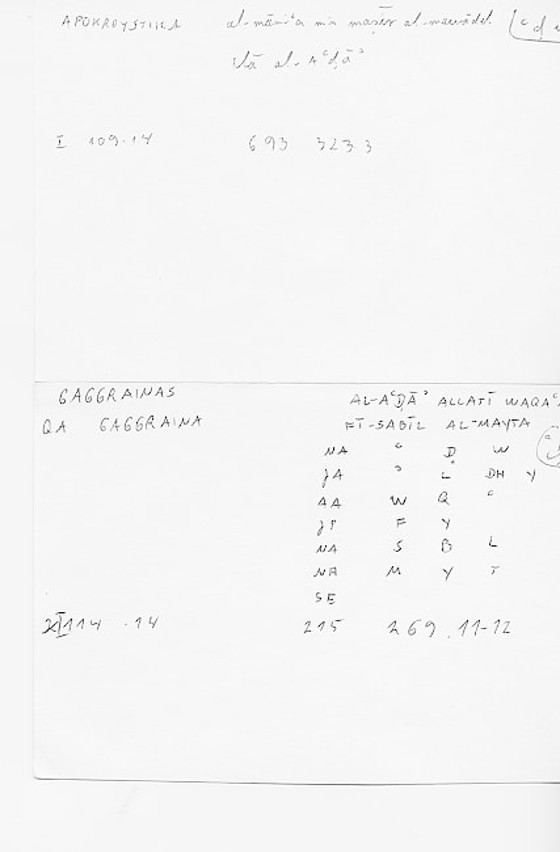 APOKROYSTIKA al-māniʿa min maṣīr al-mawādd. (ʿ ḍ
ilā al-Aʿḍāʾ
I 109.14 693 323.3
GAGGRAINAS AL-AʿḌĀʾ ALLATĪ WAQAʿA
QA GAGGRAINA FĪ-SABĪL AL-MAYTA
NA ʿ Ḍ W
JA ʾ L DH Y
AA W Q ʿ
JP F Y
NA S B L
NA M Y T
SE
XI 114 .14 215 269 .11-12